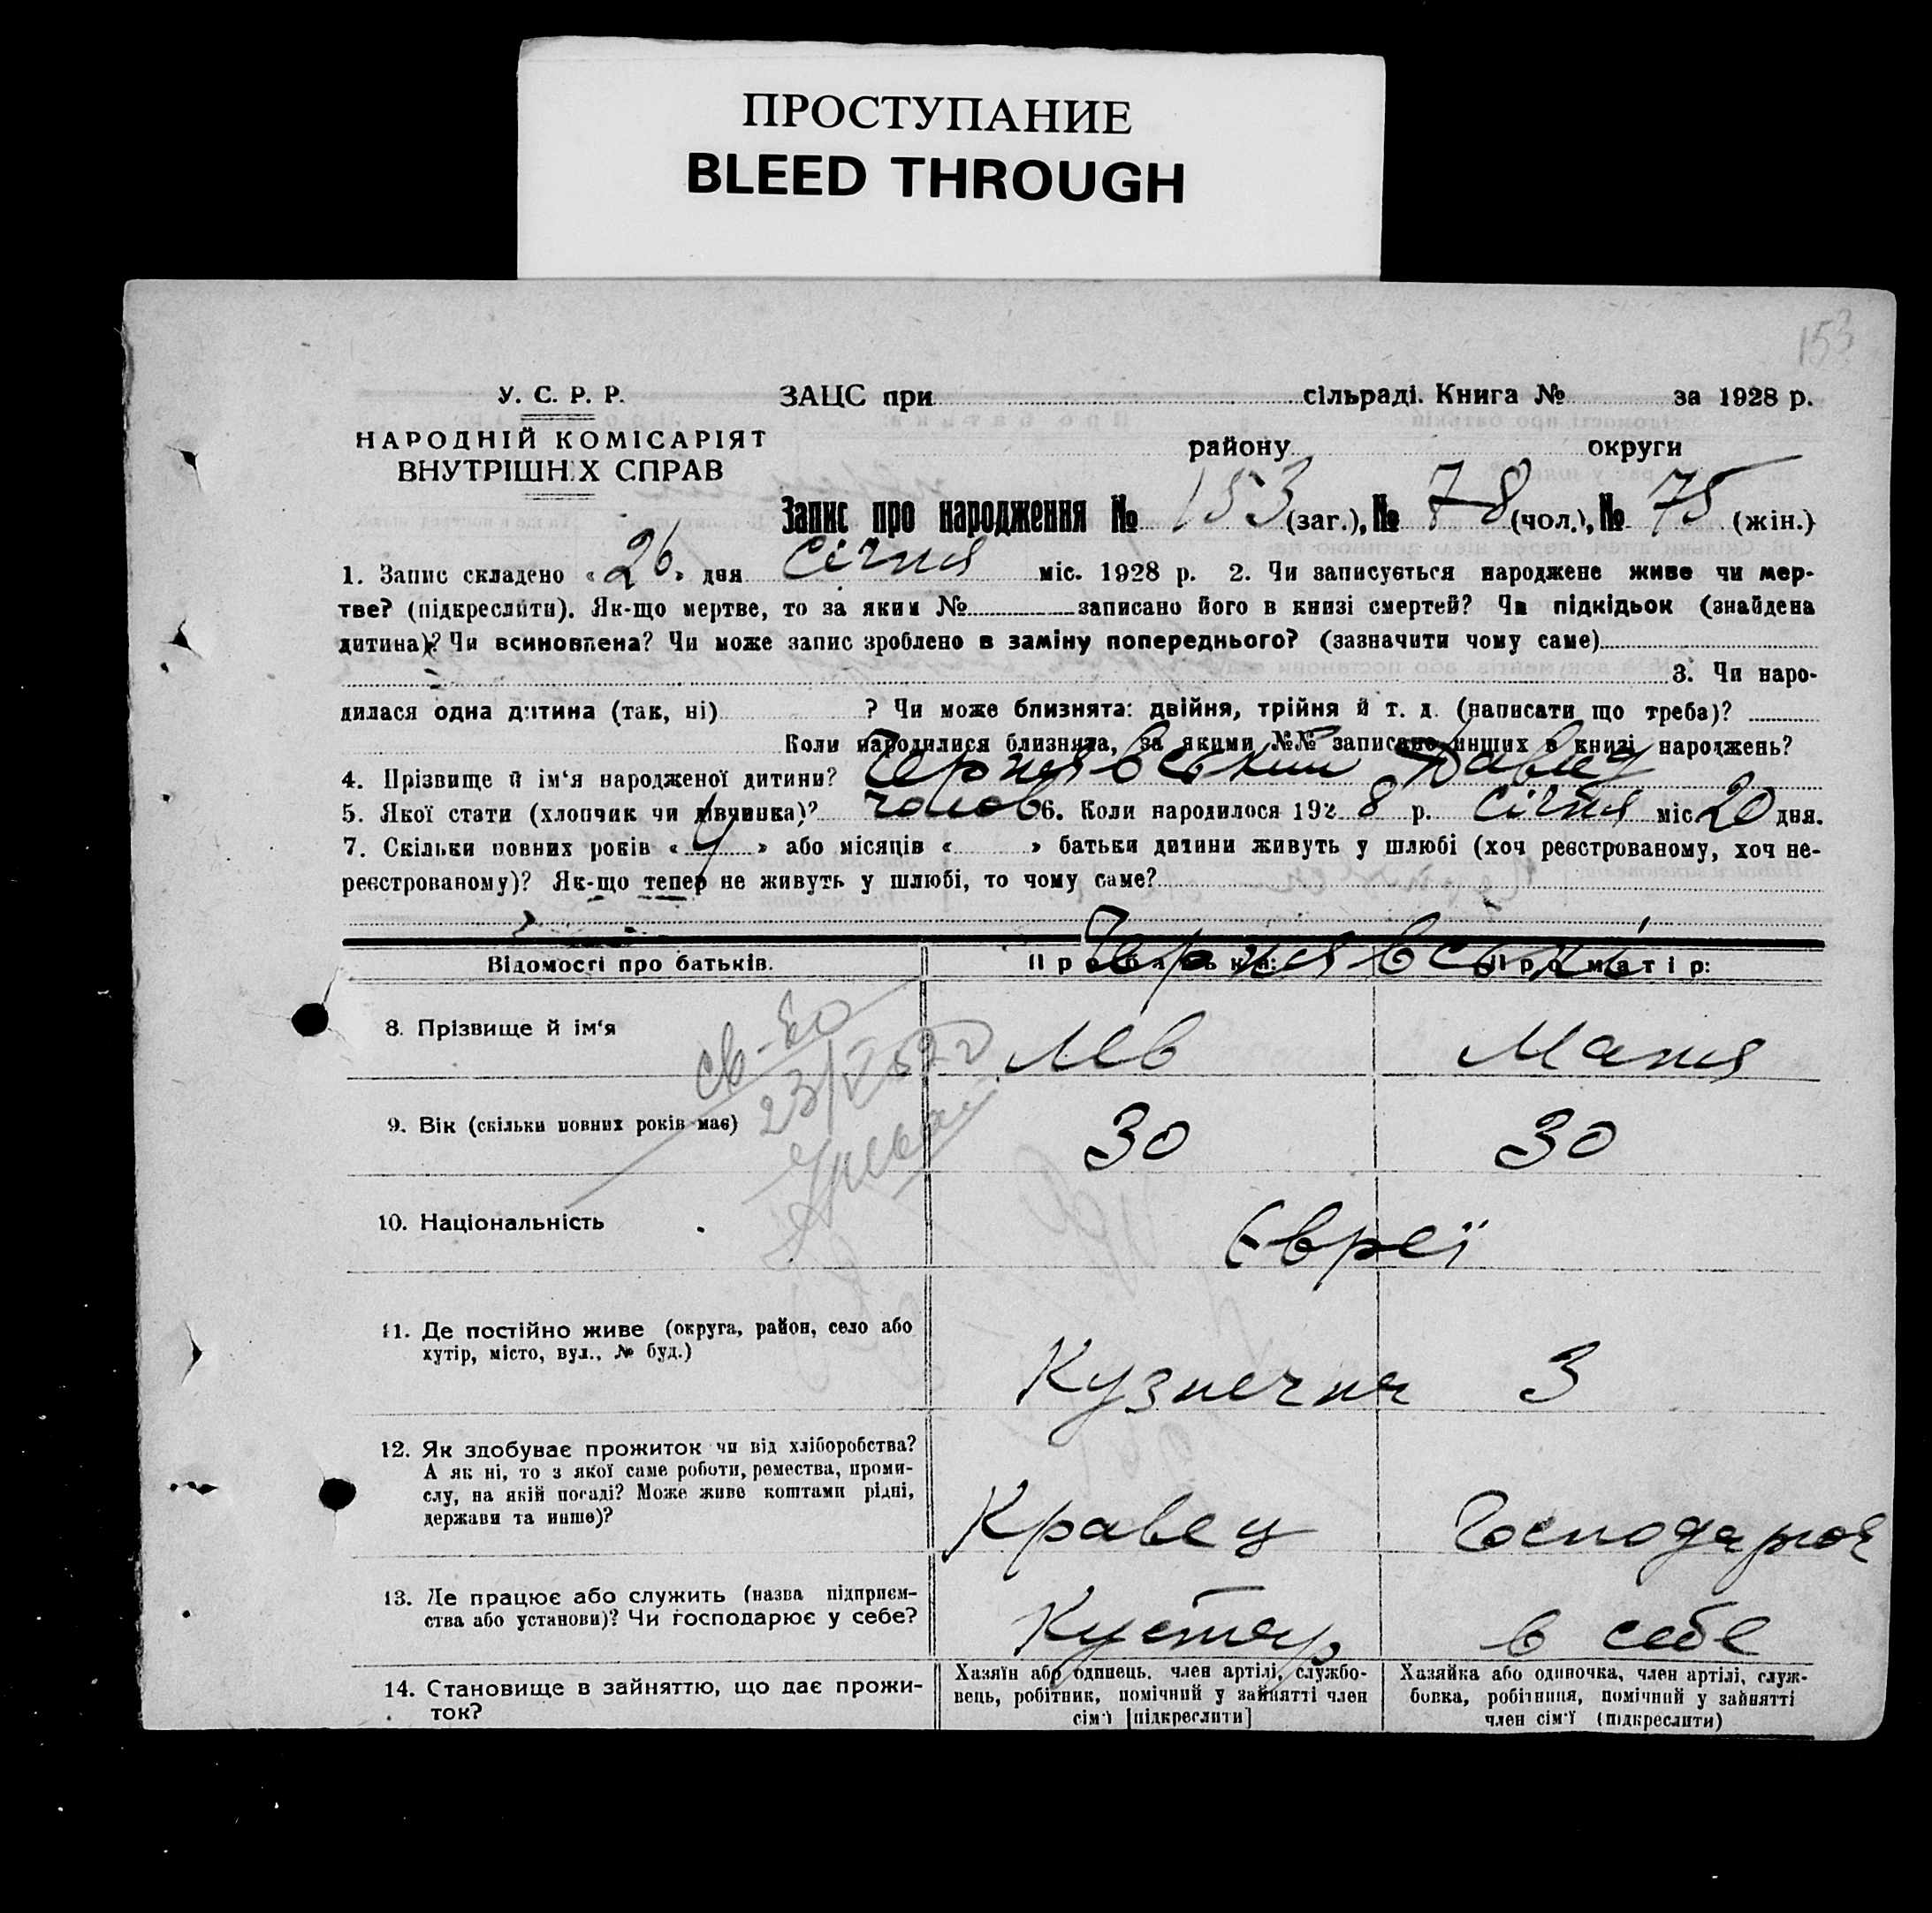 ПРОСТУПАНИЕ
BLEED THROUGH
153
У. С. Р. Р.
НАРОДНІЙ КОМІСАРІЯТ
ВНУТРІШНІХ СПРАВ
ЗАЦС при сільраді. Книга № за 1928 р.
району округи
Запис про народження № 153 (заг.), № 78 (чол.), № 75 (жін.)
1. Запис складено «26» дня січня міс. 1928 р. 2. Чи записується народжене живе чи мер-
тве? (підкреслити). Як-що мертве, то за яким № записано його в книзі смертей? Чи підкідьок (знайдена
дитина)? Чи всиновлена? Чи може запис зроблено в заміну попереднього? (зазначити чому саме)
3. Чи наро-
дилася одна дитина (так, ні) ? Чи може близнята: двійня, трійня й т. д. (написати що треба)?
Коли народилися близнята, за якими №№ записано инших в книзі народжень?
4. Прізвище й ім‘я народженої дитини? Чернявський Давид
5. Якої стати (хлопчик чи дівчинка)? чолов 6. Коли народилося 1928 р. січня міс 20 дня.
7. Скільки повних років «4» або місяців « » батьки дитини живуть у шлюбі (хоч реєстрованому, хоч не-
реєстрованому)? Як-що тепер не живуть у шлюбі, то чому саме?
Відомості про батьків. Про батька: Про матір:
Чернявські
8. Прізвище й ім‘я Лев Маня
св-во
9. Вік (скільки повних років має) 30 30
10. Національність Євреї
11. Де постійно живе (округа, район, село або
хутір, місто, вул., № буд.)
Кузнечна 3
12. Як здобуває прожиток чи від хліборобства?
А як ні, то з якої саме роботи, ремества, проми-
слу, на якій посаді? Може живе коштами рідні,
держави та инше)?
Кравец Господарює
13. Де працює або служить (назва підприєм-
ства або установи)? Чи господарює у себе?
Кустар в себе
14. Становище в зайняттю, що дає прожи-
ток?
Хазяїн або одинець, член артілі, службо-
вець, робітник, помічний у зайнятті член
сім‘ї [підкреслити]
Хазяйка або одиночка, член артілі, служ-
бовка, робітниця, помічний у зайнятті
член сім‘ї (підкреслити)